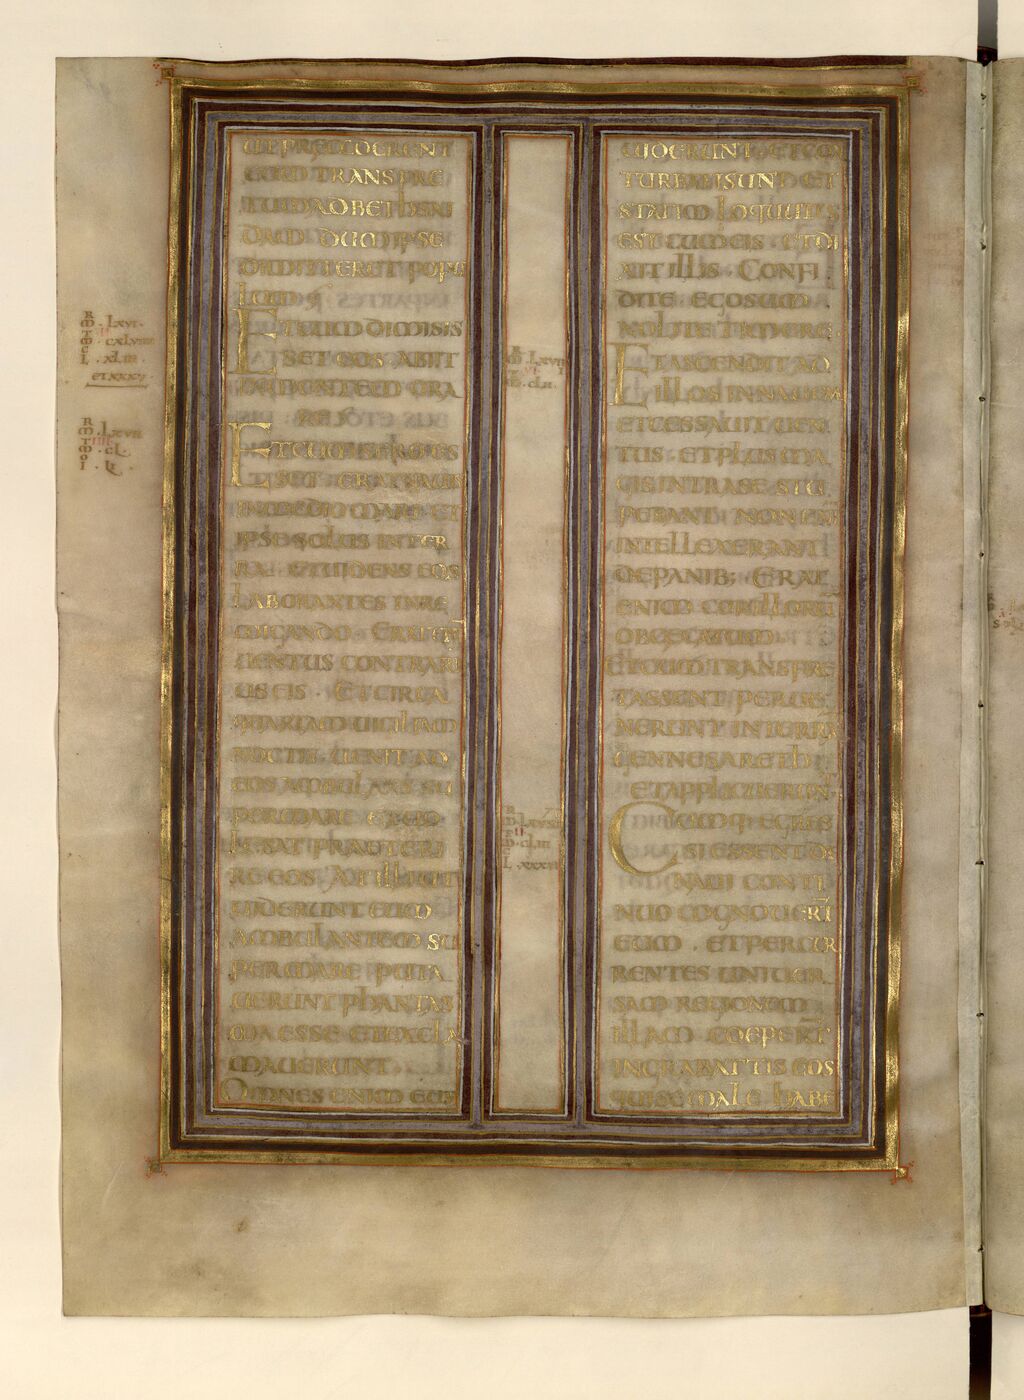 UT PRECEDERENT
EUM TRANS FRE
TUM AD BETHSAI
DAM DUM IPSE
DIMITTERET POPU
LUM
ET CUM DIMISIS
SET EOS ABIIT
IN MONTEM ORA
RE
ET CUM SERO ES
SET ERAT NAVIS
IN MEDIO MARI ET
IPSE SOLUS IN TER
RA ET VIDENS EOS
LABORANTES IN RE
MIGANDO ERAT
VENTUS CONTRARI
US EIS ET CIRCA
QUARTAM VIGILIAM
NOCTIS VENIT AD
EOS AMBULANS SU
PER MARE ET VO
LEBAT PRAETERI
RE EOS AT ILLI UT
VIDERUNT EUM
AMBULANTEM SU
PER MARE PUTA
VERUNT PHANTAS
MA ESSE ET EXCLA
MAVERUNT
OMNES ENIM EUM
R LXVI
M CXLVIIII
L XLIII
ET XXXV
R LXVII
M CL
VIDERUNT ET CON
TURBATI SUNT ET
STATIM LOQUUTUS
EST CUM EIS ET DI
XIT ILLIS CONFI
DITE EGO SUM
NOLITE TIMERE
ET ASCENDIT AD
ILLOS IN NAVEM
ET CESSAVIT VEN
TUS ET PLUS MA
GIS INTRA SE STU
PEBANT NON ENI
INTELLEXERANT
DE PANIB; ERAT
ENIM COR ILLORU
OBCECATUM
ET CUM TRANSFRE
TASSENT PERVE
NERUNT IN TERRA
GENNESARETH
ET APPLICUERUN
CUMQ EGRES
SI ESSENT DE
NAVI CONTI
NUO COGNOVERT
EUM ET PERCUR
RENTES UNIVER
SAM REGIONEM
ILLAM COEPERT
IN GRABATTIS EOS
QUI SE MALE HABE
M CLII
M CLIII